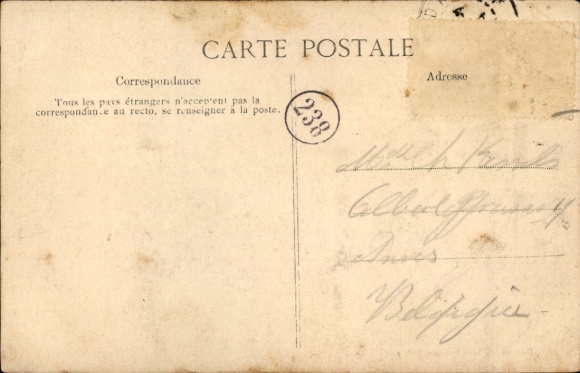 CARTE POSTALE
Correspondance
Tous les pays étrangers n'acceptent pas la
correspondance au recto, se renseigner à la poste.
Adresse
238
Anvers
Belgique